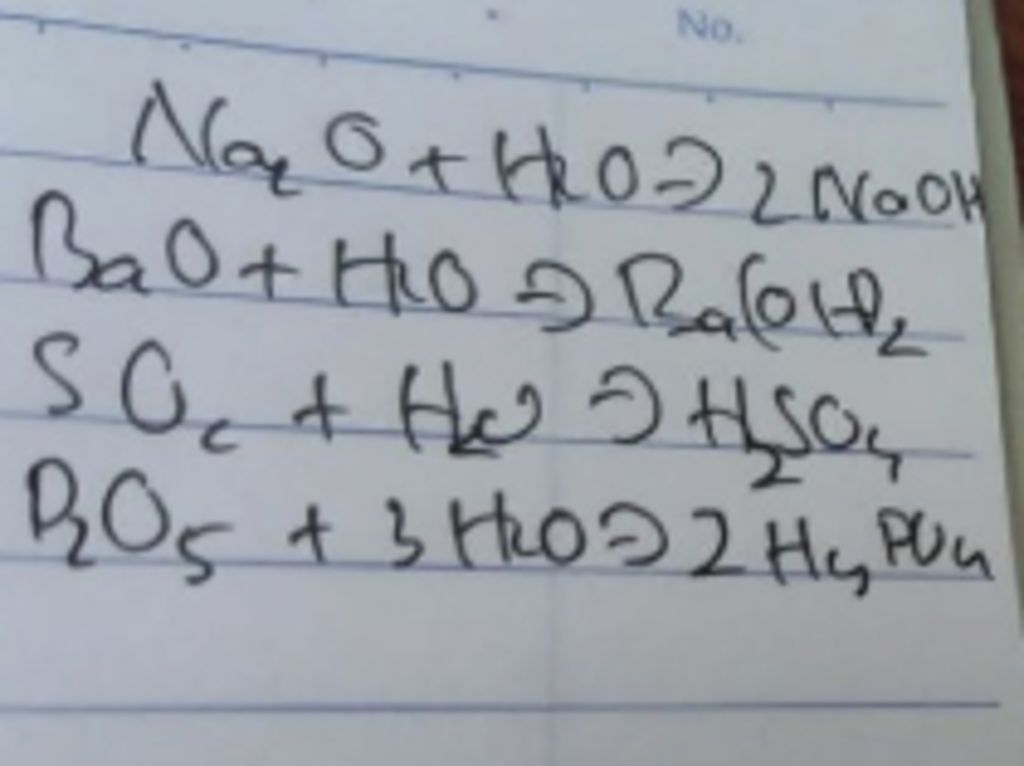 No.
Na₂O + H₂O => 2NaOH
BaO + H₂O => Ba(OH)₂
SO₂ + H₂O => H₂SO₄
P₂O₅ + 3H₂O => 2H₃PO₄